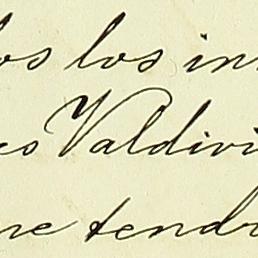 los los in
es Valdivi
ne tendr